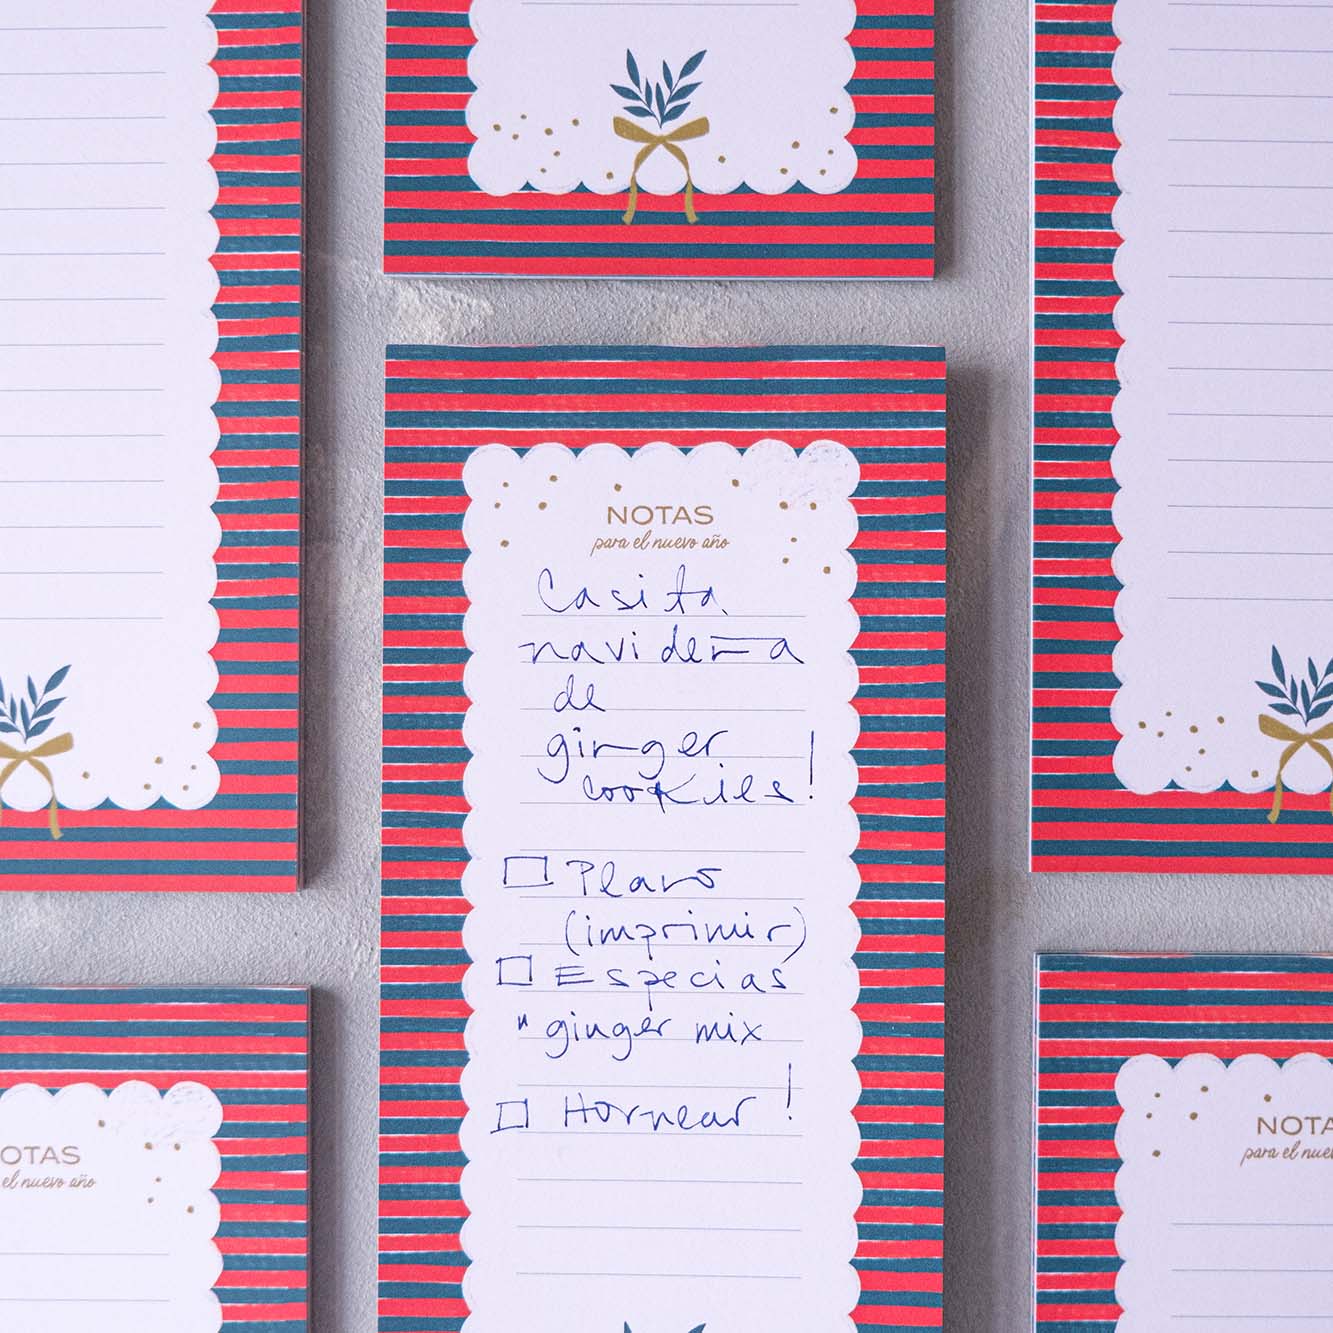 NOTAS
para el nuevo año
Casita
navideña
de
ginger
cookies!
Plano
(imprimir)
Especias
"ginger mix
Hornear!
OTAS
el nuevo año
NOTA
para el nuev